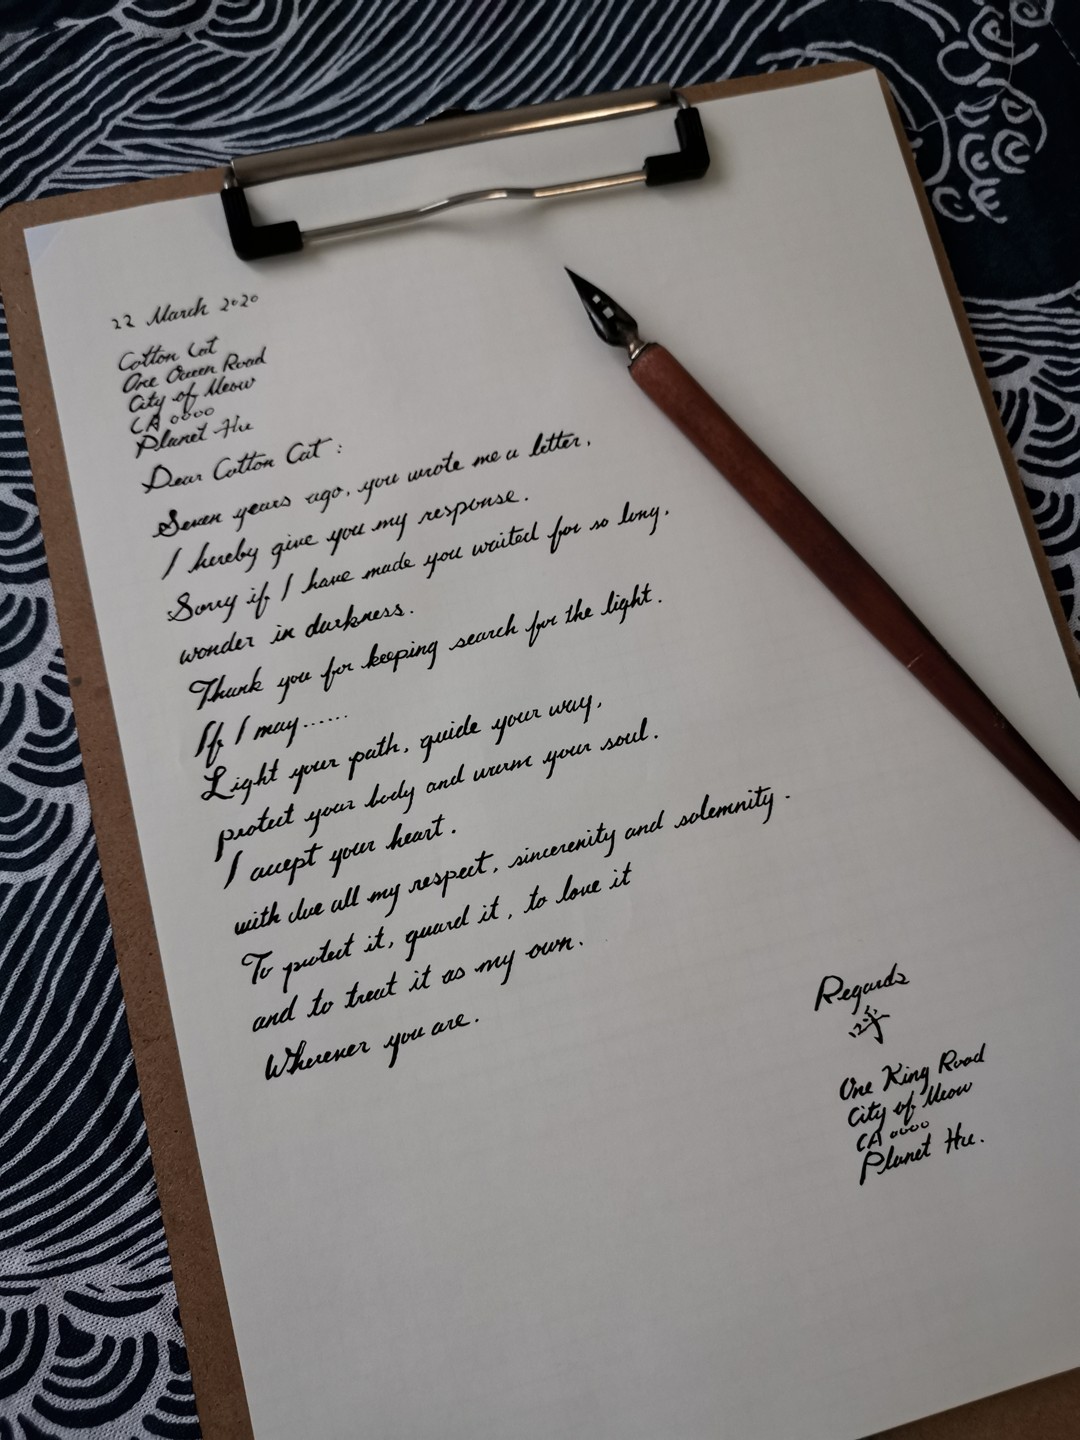 22 March 2020
Cotton Cat
One Queen Road
City of Meow
CA 0000
Planet Hu
Dear Cotton Cat :
Seven years ago, you wrote me a letter,
I hereby give you my response.
Sorry if I have made you waited for so long,
wonder in darkness.
Thank you for keeping search for the light.
If I may......
Light your path, guide your way,
protect your body and warm your soul.
I accept your heart.
with due all my respect, sincerenity and solemnity.
To protect it, guard it, to love it
and to treat it as my own.
Wherever you are.
Regards
One King Road
City of Meow
CA 0000
Planet Hu.